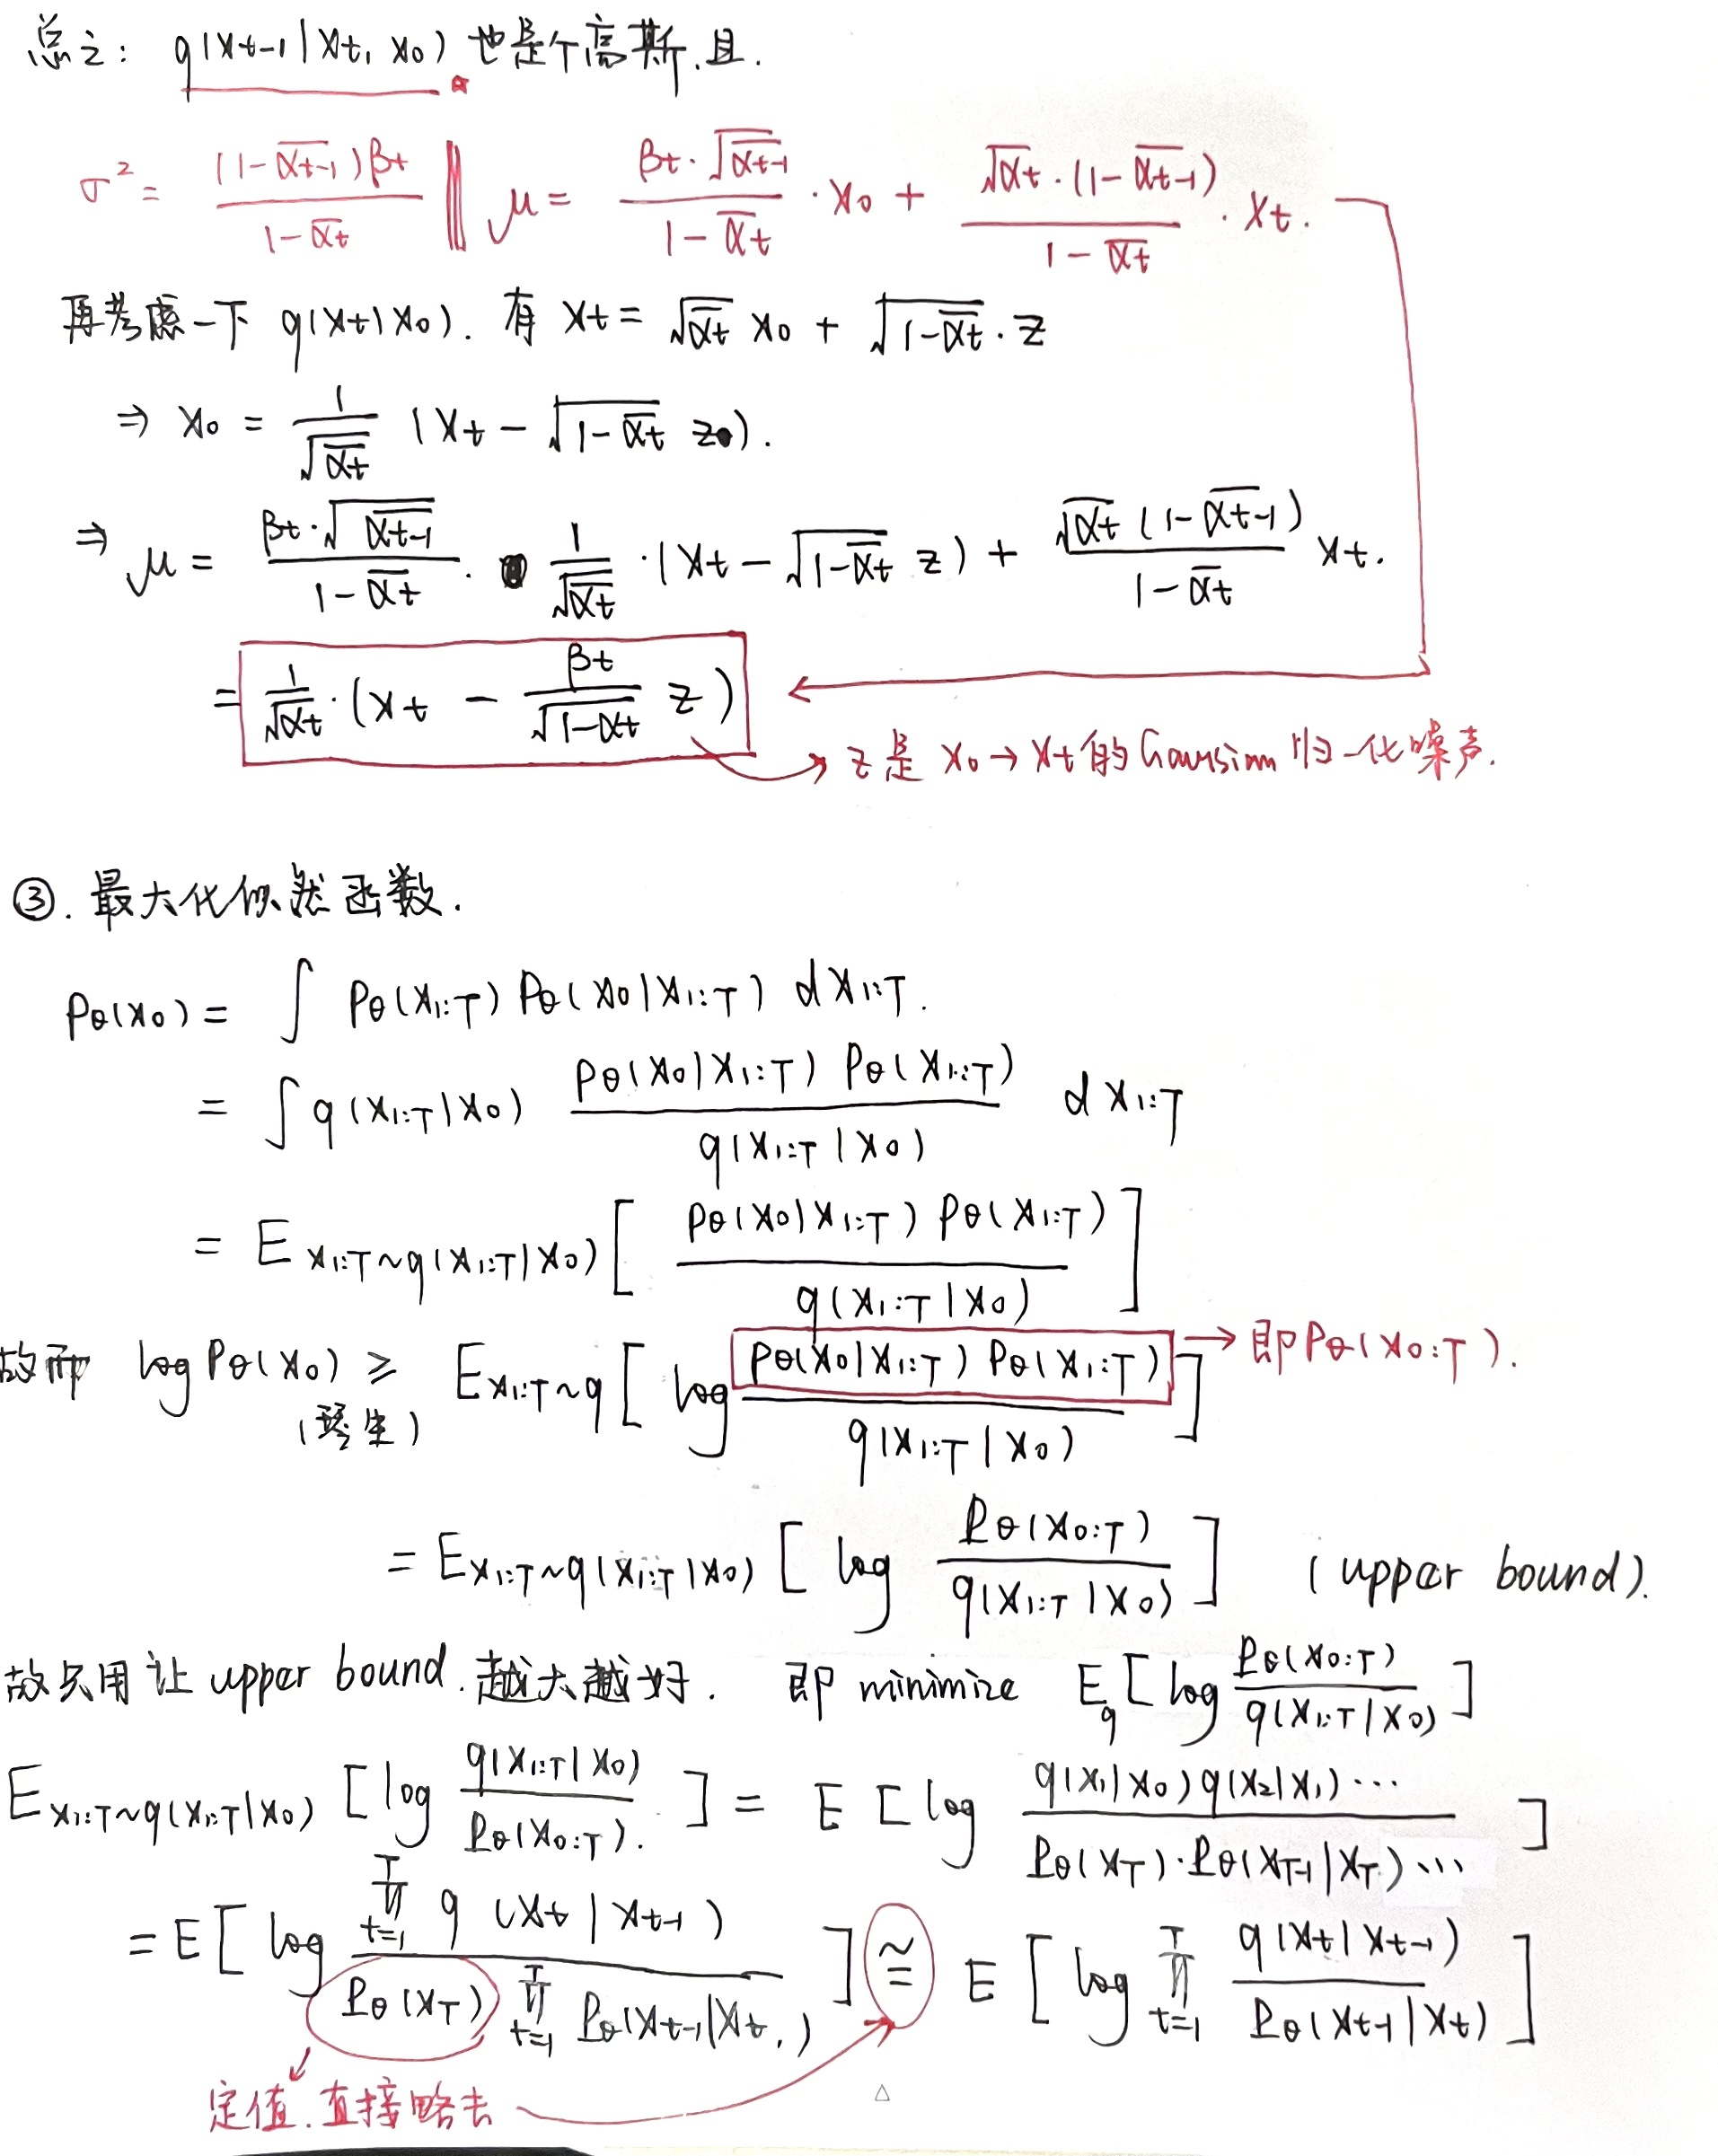 总之: q(xt-1|xt, x0) 也是个高斯.且.
σ² = (1-ᾱt-1)βt / (1-ᾱt) ‖ μ = βt·√ᾱt-1 / (1-ᾱt) · x0 + √αt·(1-ᾱt-1) / (1-ᾱt) · xt.
再考虑一下 q(xt|x0). 有 xt = √ᾱt x0 + √(1-ᾱt)·z
⇒ x0 = 1/√ᾱt (xt - √(1-ᾱt) z).
⇒ μ = βt·√ᾱt-1 / (1-ᾱt) · 1/√ᾱt ·(xt - √(1-ᾱt) z) + √αt (1-ᾱt-1) / (1-ᾱt) xt.
= 1/√αt ·(xt - βt/√(1-αt) z)
→ z是 x0→xt的Gaussian归一化噪声.
③. 最大化似然函数.
Pθ(x0) = ∫ Pθ(x1:T) Pθ(x0|x1:T) dx1:T.
= ∫ q(x1:T|x0) Pθ(x0|x1:T) Pθ(x1:T) / q(x1:T|x0) dx1:T
= E x1:T~q(x1:T|x0) [ Pθ(x0|x1:T) Pθ(x1:T) / q(x1:T|x0) ]
故而 log Pθ(x0) ≥ E x1:T~q [ log Pθ(x0|x1:T) Pθ(x1:T) / q(x1:T|x0) ] → 即Pθ(x0:T).
(琴生)
= E x1:T~q(x1:T|x0) [ log Pθ(x0:T) / q(x1:T|x0) ] (upper bound).
故只用让 upper bound.越大越好. 即 minimize E q [ log Pθ(x0:T) / q(x1:T|x0) ]
E x1:T~q(x1:T|x0) [ log q(x1:T|x0) / Pθ(x0:T). ] = E [ log q(x1|x0) q(x2|x1)⋯ / Pθ(xT)·Pθ(xT-1|xT)⋯ ]
= E [ log ∏ t=1 T q(xt|xt-1) / Pθ(xT) ∏ t=1 T Pθ(xt-1|xt,) ] ≅ E [ log ∏ t=1 T q(xt|xt-1) / Pθ(xt-1|xt) ]
定值.直接略去